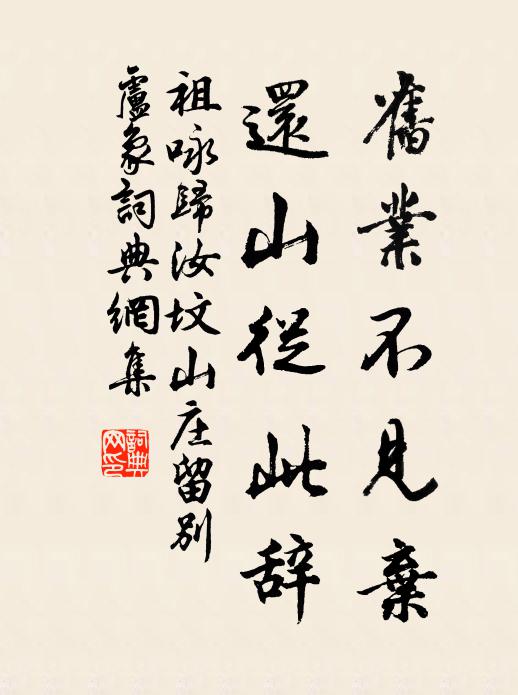 舊業不見棄
還山從此辞
祖咏歸汝墳山庄留別
盧象詞典網集
詞典
网印